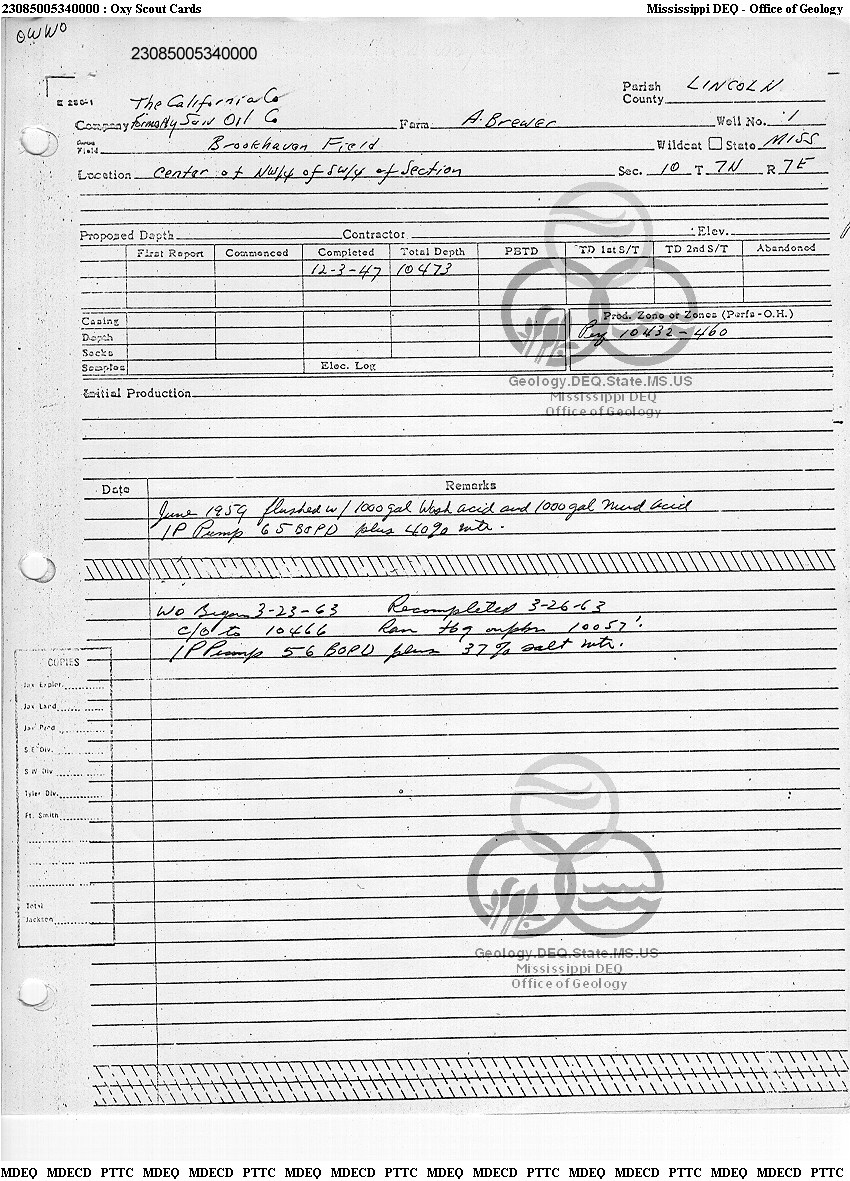 23085005340000 : Oxy Scout Cards Mississippi DEQ - Office of Geology
OWWO
23085005340000
The California Co Parish County LINCOLN
Company formerly Sun Oil Co Farm A. Brewer Well No. 1
Field Brookhaven Field Wildcat State MISS
Location Center of NW/4 of SW/4 of Section Sec. 10 T 7N R 7E
Proposed Depth Contractor Elev.
First Report Commenced Completed Total Depth PBTD TD 1st S/T TD 2nd S/T Abandoned
12-3-47 10473
Casing Prod. Zone or Zones (Perfs-O.H.)
Depth Perf 10432-460
Sacks
Samples Elec. Log
Geology.DEQ.State.MS.US
Initial Production
Mississippi DEQ
Office of Geology
Date Remarks
June 1959 flushed w/ 1000 gal Wash acid and 1000 gal Mud acid
IP Pump 65 BOPD plus 40% wtr.
WO Began 3-23-63 Recompleted 3-26-63
c/o to 10466 Ran tbg 10057'.
IP Pump 56 BOPD plus 37% salt wtr.
COPIES
Jax Explor.
Jax Land
Jax Prod
S E Div.
S W Div
Tyler Div.
Ft. Smith
Total
Jackson
Geology.DEQ.State.MS.US
Mississippi DEQ
Office of Geology
MDEQ MDECD PTTC MDEQ MDECD PTTC MDEQ MDECD PTTC MDEQ MDECD PTTC MDEQ MDECD PTTC MDEQ MDECD PTTC